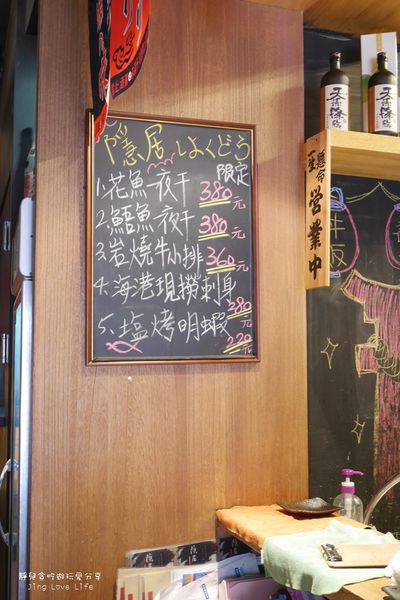 隱居しよくどう
限定
1.花魚一夜干 380元
2.鯖魚一夜干 380元
3.岩燒牛小排 360元
4.海港現撈刺身 280元
5.塩烤明蝦 220元
一生懸命
營業中
靜兒貪吃遊玩愛分享
Jing Love Life